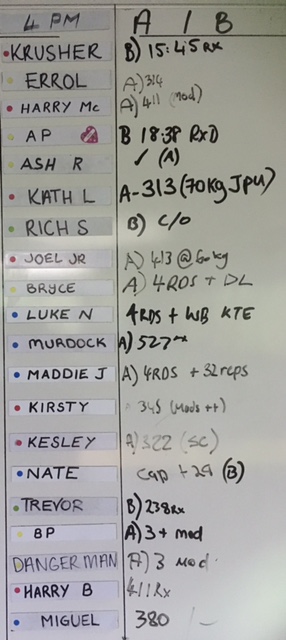 4 PM A / B
KRUSHER B) 15:45 Rx
ERROL A) 314
HARRY Mc A) 411 (mod)
AP B 18:38 RxD
ASH R ✓ (A)
KATH L A-313 (70kg JPU)
RICH S B) C/O
JOEL JR A) 413 @ 60kg
BRYCE A) 4RDS + DL
LUKE N 4RDS + WB KTE
MURDOCK A) 527
MADDIE J A) 4RDS + 32reps
KIRSTY 345 (mods ++)
KESLEY A) 322 (SC)
NATE Cap + 29 (B)
TREVOR B) 238 Rx
BP A) 3 + mod
DANGERMAN A) 3 mod
HARRY B 411 Rx
MIGUEL 380